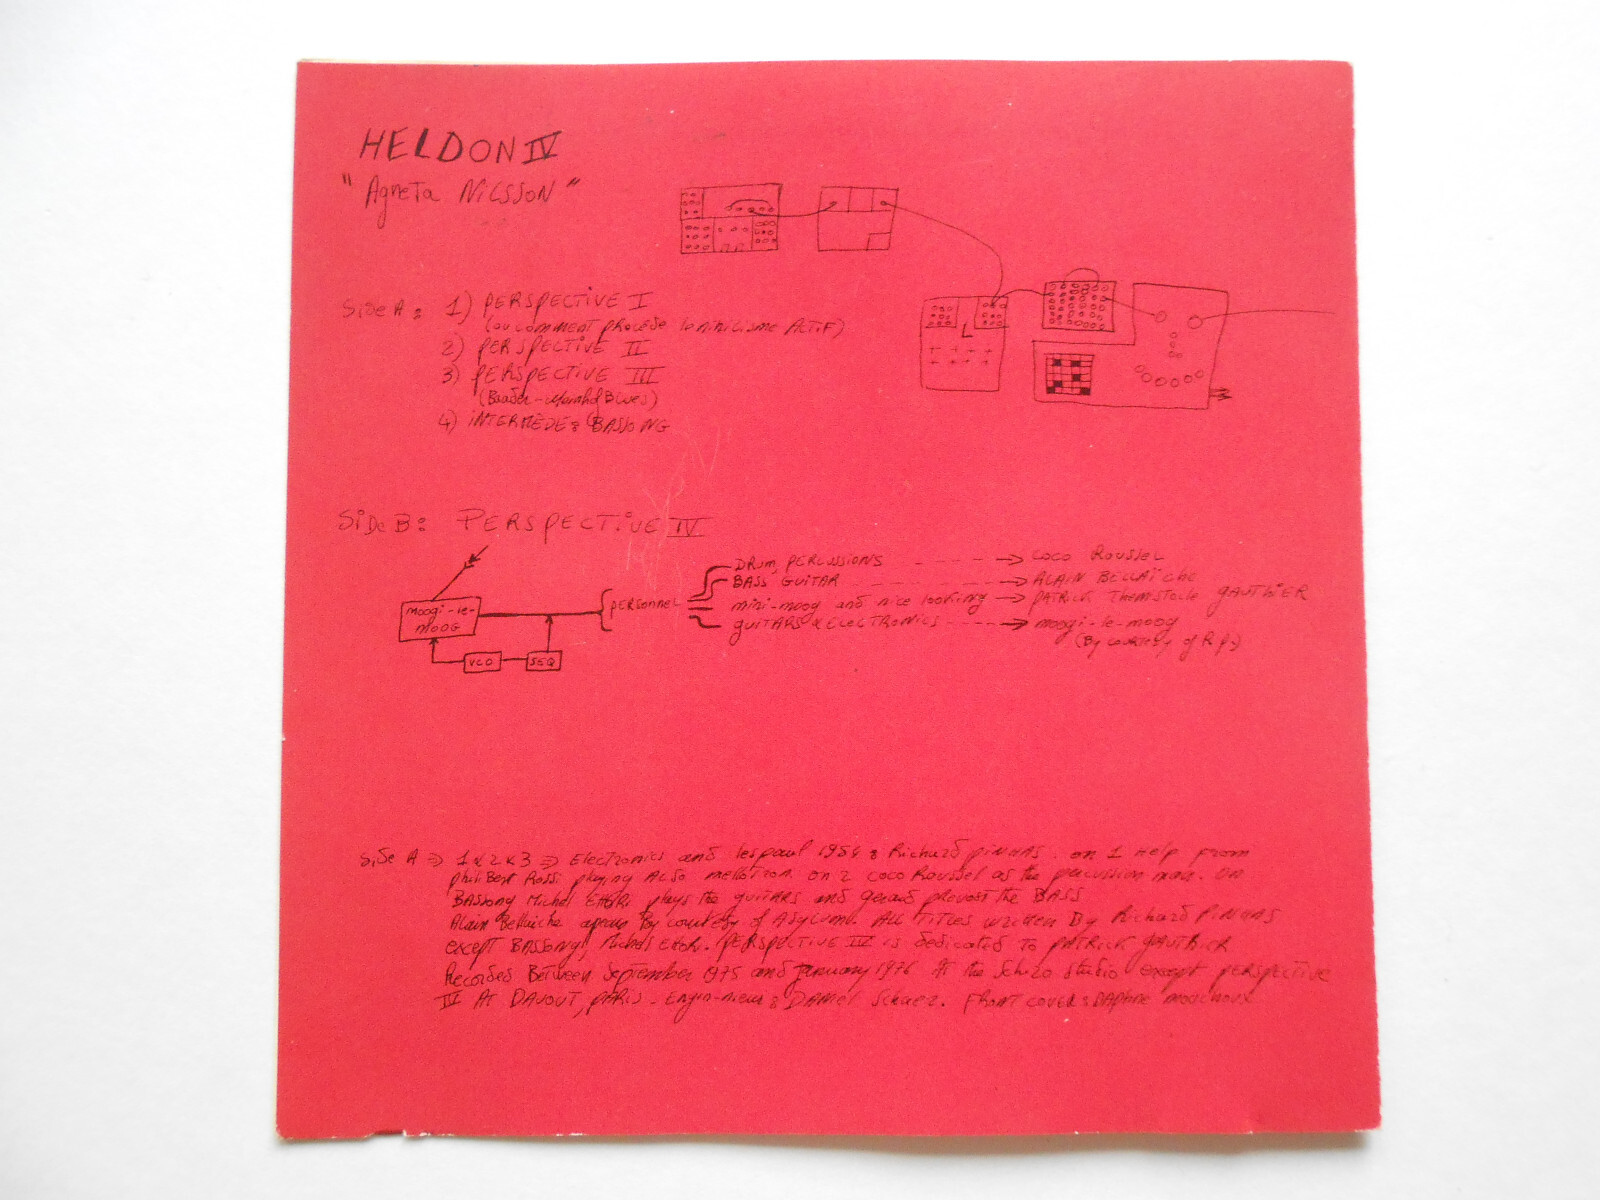 HELDON IV
"Agneta NILSSON"
Side A: 1) PERSPECTIVE I
(ou comment procède le nihilisme ACTIF)
2) PERSPECTIVE II
3) PERSPECTIVE III
(Baader-Meinhof Blues)
4) INTERMÈDE: BASSONG
Side B: PERSPECTIVE IV
DRUM, PERCUSSIONS → COCO ROUSSEL
BASS GUITAR → ALAIN BELLAÏCHE
mini-moog and nice looking → PATRICK THEMISTOCLE GAUTHIER
GUITARS & ELECTRONICS → moogi-le-moog
(By courtesy of R.P.)
PERSONNEL
MOOGI-LE-
MOOG
VCO
SEQ
Side A ⇒ 1 & 2 & 3 ⇒ Electronics and lespaul 1954: Richard PINHAS. on 1 Help from
philibert Rossi playing ALSO mellotron. on 2 COCO Roussel as the percussion man. on
BASSONG Michel ETTORI plays the guitars and gerard prevost the BASS
Alain Bellaiche By courtesy of ASYLUM. ALL TITLES written By Richard PINHAS
except BASSONG, Michel Ettori. PERSPECTIVE IV is dedicated to PATRICK GAUTHIER
Recorded Between September 1975 and January 1976 At the Schizo studio except PERSPECTIVE
IV AT DAVOUT, PARIS. Engin-meur: DANIEL FRONT COVER: DAPHNE